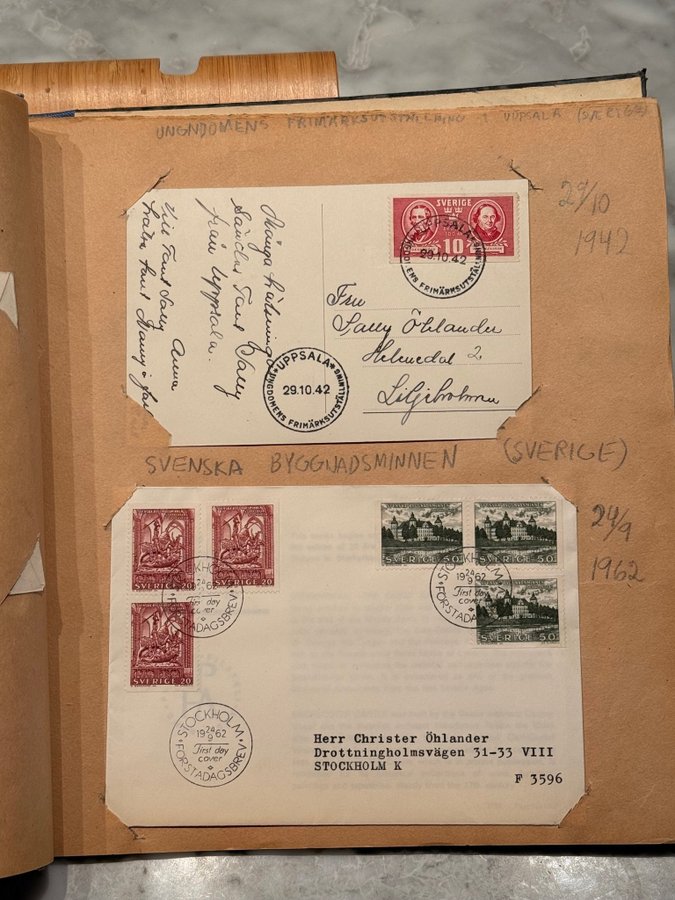 UNGNDOMENS FRIMÄRKSUTSTÄLLNING I UPPSALA (SVERIGE)
29/10
1942
SVERIGE
10
UPPSALA
29.10.42
UNGDOMENS FRIMÄRKSUTSTÄLLNING
Många hälsningar
Sänder Tant Sally
från Uppsala.
Till Tant Sally
Fru
Sally Öhlander
Helenedal 2
Liljeholmen
UPPSALA
29.10.42
UNGDOMENS FRIMÄRKSUTSTÄLLNING
SVENSKA BYGGNADSMINNEN (SVERIGE)
24/9
1962
SVERIGE 20
SVERIGE 20
SVERIGE 20
SVERIGE 50
SVERIGE 50
SVERIGE 50
STOCKHOLM
24
19 62
9
First day
cover
FÖRSTADAGSBREV
STOCKHOLM
24
19 62
9
First day
cover
FÖRSTADAGSBREV
STOCKHOLM
24
19 62
9
First day
cover
FÖRSTADAGSBREV
Herr Christer Öhlander
Drottningholmsvägen 31-33 VIII
STOCKHOLM K
F 3596